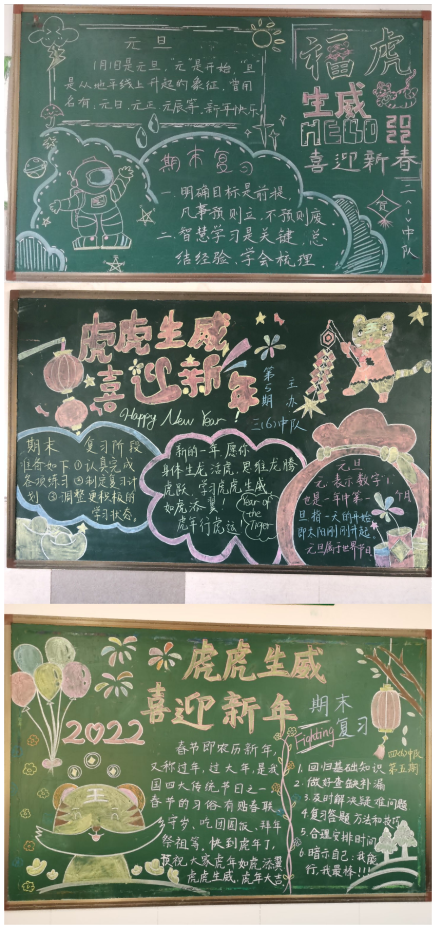 元旦
1月1日是元旦,"元"是开始,"旦"
是从地平线上升起的象征,曾用
名有,元日、元正、元辰等,新年快乐
福虎
生威
HELLO
2022
喜迎新春
二(一)中队
贺
期末复习
一、明确目标是前提,
凡事预则立,不预则废。
二、智慧学习是关键,总
结经验,学会梳理.
虎虎生威
喜迎新年
Happy New Year!
第5期
主办
三(6)中队
期末 复习阶段
准备如下①认真完成
各项练习②制定复习计
划 ③调整更积极的
学习状态。
新的一年愿你
身体生龙活虎,思维龙腾
虎跃,学习虎虎生威
如虎添翼!
虎年行虎运!
Year of
the
Tiger
元旦
元:表示数字1,
也是一年中第一个月
旦:指一天的开始
即太阳刚刚升起
元旦属于世界节日
虎虎生威
喜迎新年
2022
王
春节即农历新年,
又称过年,过大年,是我
国四大传统节日之一
春节的习俗有贴春联、
守岁、吃团圆饭、拜年
祭祖等。快到虎年了,
预祝大家虎年如虎添翼
虎虎生威,虎年大吉
期末
Fighting 复习
四(4)中队
第五期
1. 回归基础知识
2. 做好查缺补漏
3. 及时解决疑难问题
4. 复习答题方法和技巧
5. 合理安排时间
6. 暗示自己:我能
行,我最棒!!!